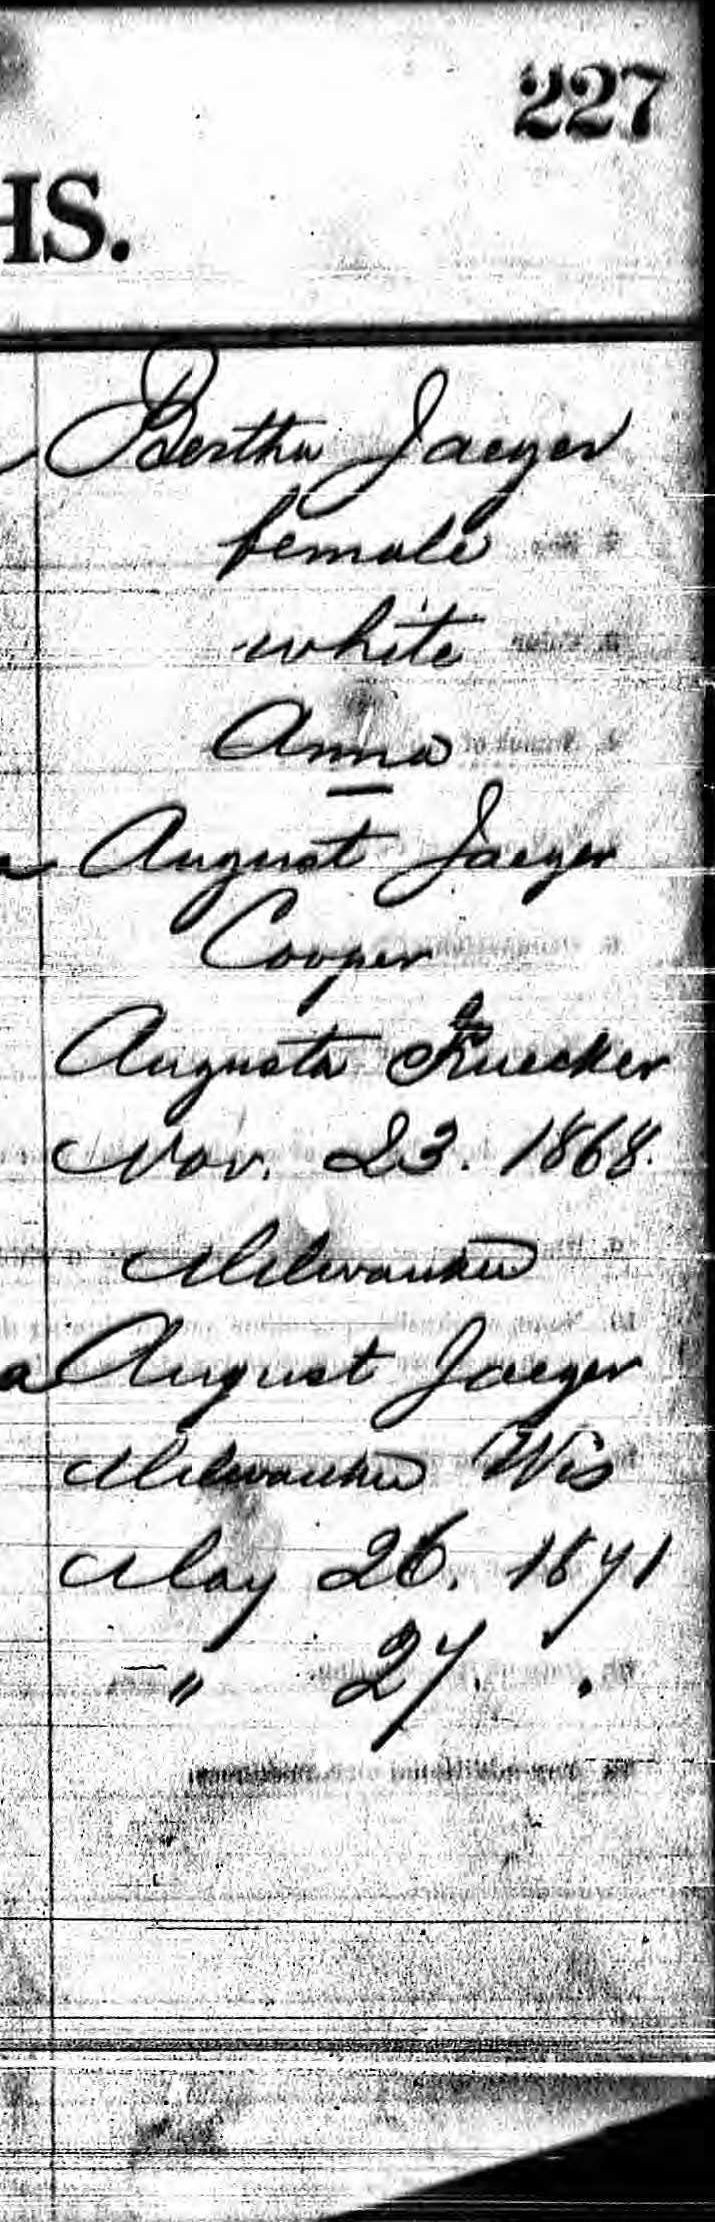 227
HS.
Bertha Jaeger
female
white
Anna
—
August Jaeger
Cooper
Augusta Kuecker
Nov. 23. 1868.
Milwaukee
August Jaeger
Milwaukee Wis
May 26. 1871
" 27. .